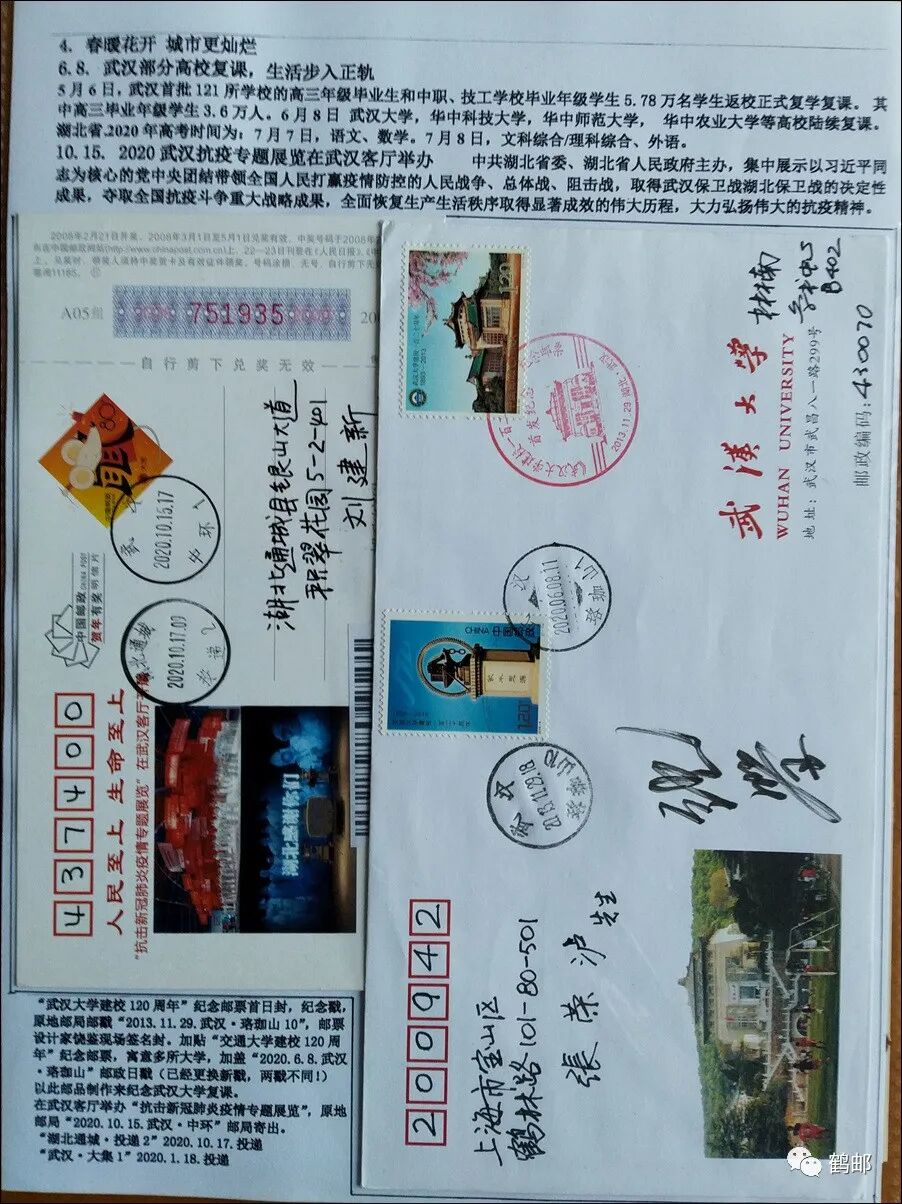 4. 春暖花开 城市更灿烂
6.8. 武汉部分高校复课，生活步入正轨
5月6日，武汉首批121所学校的高三年级毕业生和中职、技工学校毕业年级学生5.78万名学生返校正式复学复课。其
中高三毕业年级学生3.6万人。6月8日 武汉大学，华中科技大学，华中师范大学， 华中农业大学等高校陆续复课。
湖北省.2020年高考时间为：7月7日，语文、数学。7月8日，文科综合/理科综合、外语。
10.15. 2020武汉抗疫专题展览在武汉客厅举办 中共湖北省委、湖北省人民政府主办，集中展示以习近平同
志为核心的党中央团结带领全国人民打赢疫情防控的人民战争、总体战、阻击战，取得武汉保卫战湖北保卫战的决定性
成果，夺取全国抗疫斗争重大战略成果，全面恢复生产生活秩序取得显著成效的伟大历程，大力弘扬伟大的抗疫精神。
A05组
751935
自行剪下兑奖无效
80
2020.10.15.17
2020.10.17.09
中国邮政
贺年有奖明信片
湖北通城县银山大道
积翠花园5-2-401
刘建新
437400
人民至上 生命至上
"抗击新冠肺炎疫情专题展览" 在武汉客厅
湖北感谢你们
120
武汉大学建校一百二十周年
1893-2013
首发纪念
2013.11.29 湖北·武汉
林楠
B402
武汉大学
WUHAN UNIVERSITY
地址：武汉市武昌八一路299号
邮政编码：430070
2020.06.08.11
珞珈山1
CHINA 中国邮政
饮水思源
1.20
2013.11.29.18
珞珈山10
200942
上海市宝山区
鹤林路101-80-501
張荣沪 先生
“武汉大学建校120周年”纪念邮票首日封，纪念戳，
原地邮局邮戳“2013.11.29.武汉·珞珈山10”，邮票
设计家饶鉴现场签名封。加贴“交通大学建校120周
年”纪念邮票，寓意多所大学，加盖“2020.6.8.武汉
·珞珈山”邮政日戳（已经更换新戳，两戳不同！）
以此邮品制作来纪念武汉大学复课。
在武汉客厅举办“抗击新冠肺炎疫情专题展览”，原地
邮局“2020.10.15.武汉·中环”邮局寄出。
“湖北通城·投递2”2020.10.17.投递
“武汉·大集1”2020.1.18.投递
鹤邮